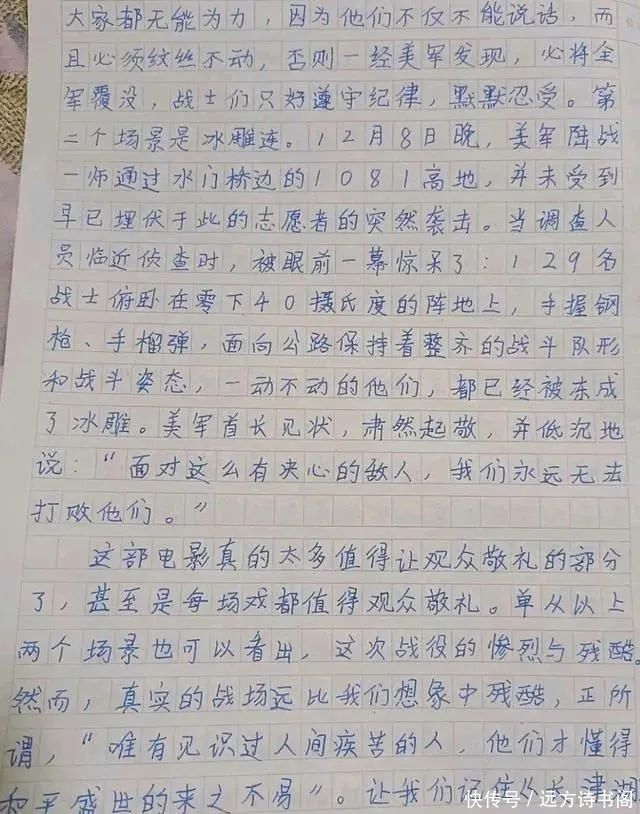 大家都无能为力，因为他们不仅不能说话，而
且必须纹丝不动，否则一经美军发现，必将全
军覆没，战士们只好遵守纪律，默默忍受。第
二个场景是冰雕连。12月8日晚，美军陆战
一师通过水门桥边的1081高地，并未受到
早已埋伏于此的志愿者的突然袭击。当调查人
员临近侦查时，被眼前一幕惊呆了：129名
战士俯卧在零下40摄氏度的阵地上，手握钢
枪、手榴弹，面向公路保持着整齐的战斗队形
和战斗姿态，一动不动的他们，都已经被冻成
了冰雕。美军首长见状，肃然起敬，并低沉地
说：“面对这么有决心的敌人，我们永远无法
打败他们。”
这部电影真的太多值得让观众敬礼的部分
了，甚至是每场戏都值得观众敬礼。单从以上
两个场景也可以看出，这次战役的惨烈与残酷。
然而，真实的战场远比我们想象中残酷，正所
谓，“唯有见识过人间疾苦的人，他们才懂得
和平盛世的来之不易”。让我们记住从长津湖
快传号／远方诗书阁